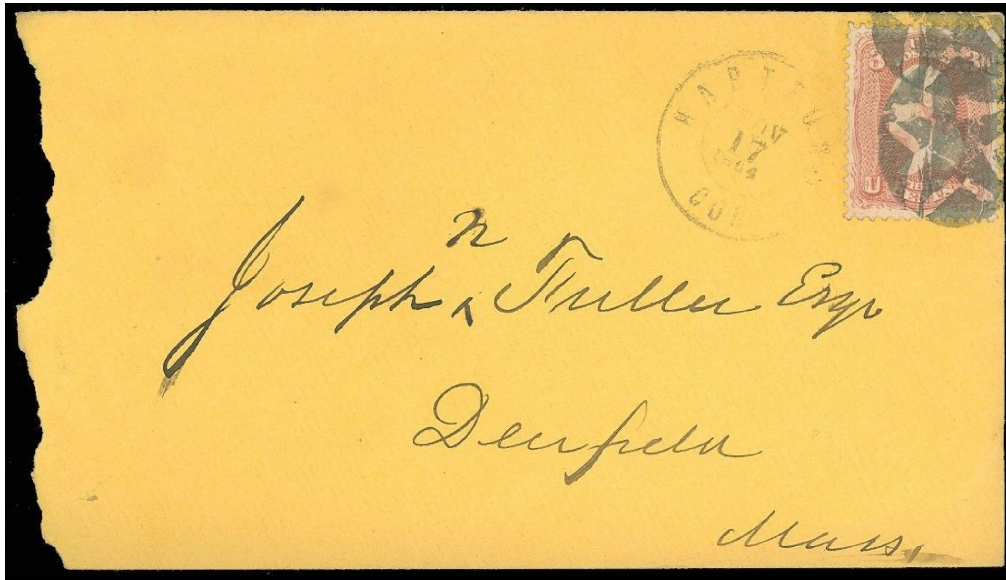 HARTFO
17
CO
N
Joseph ‸ Fuller Esqr
Deerfield
Mass,